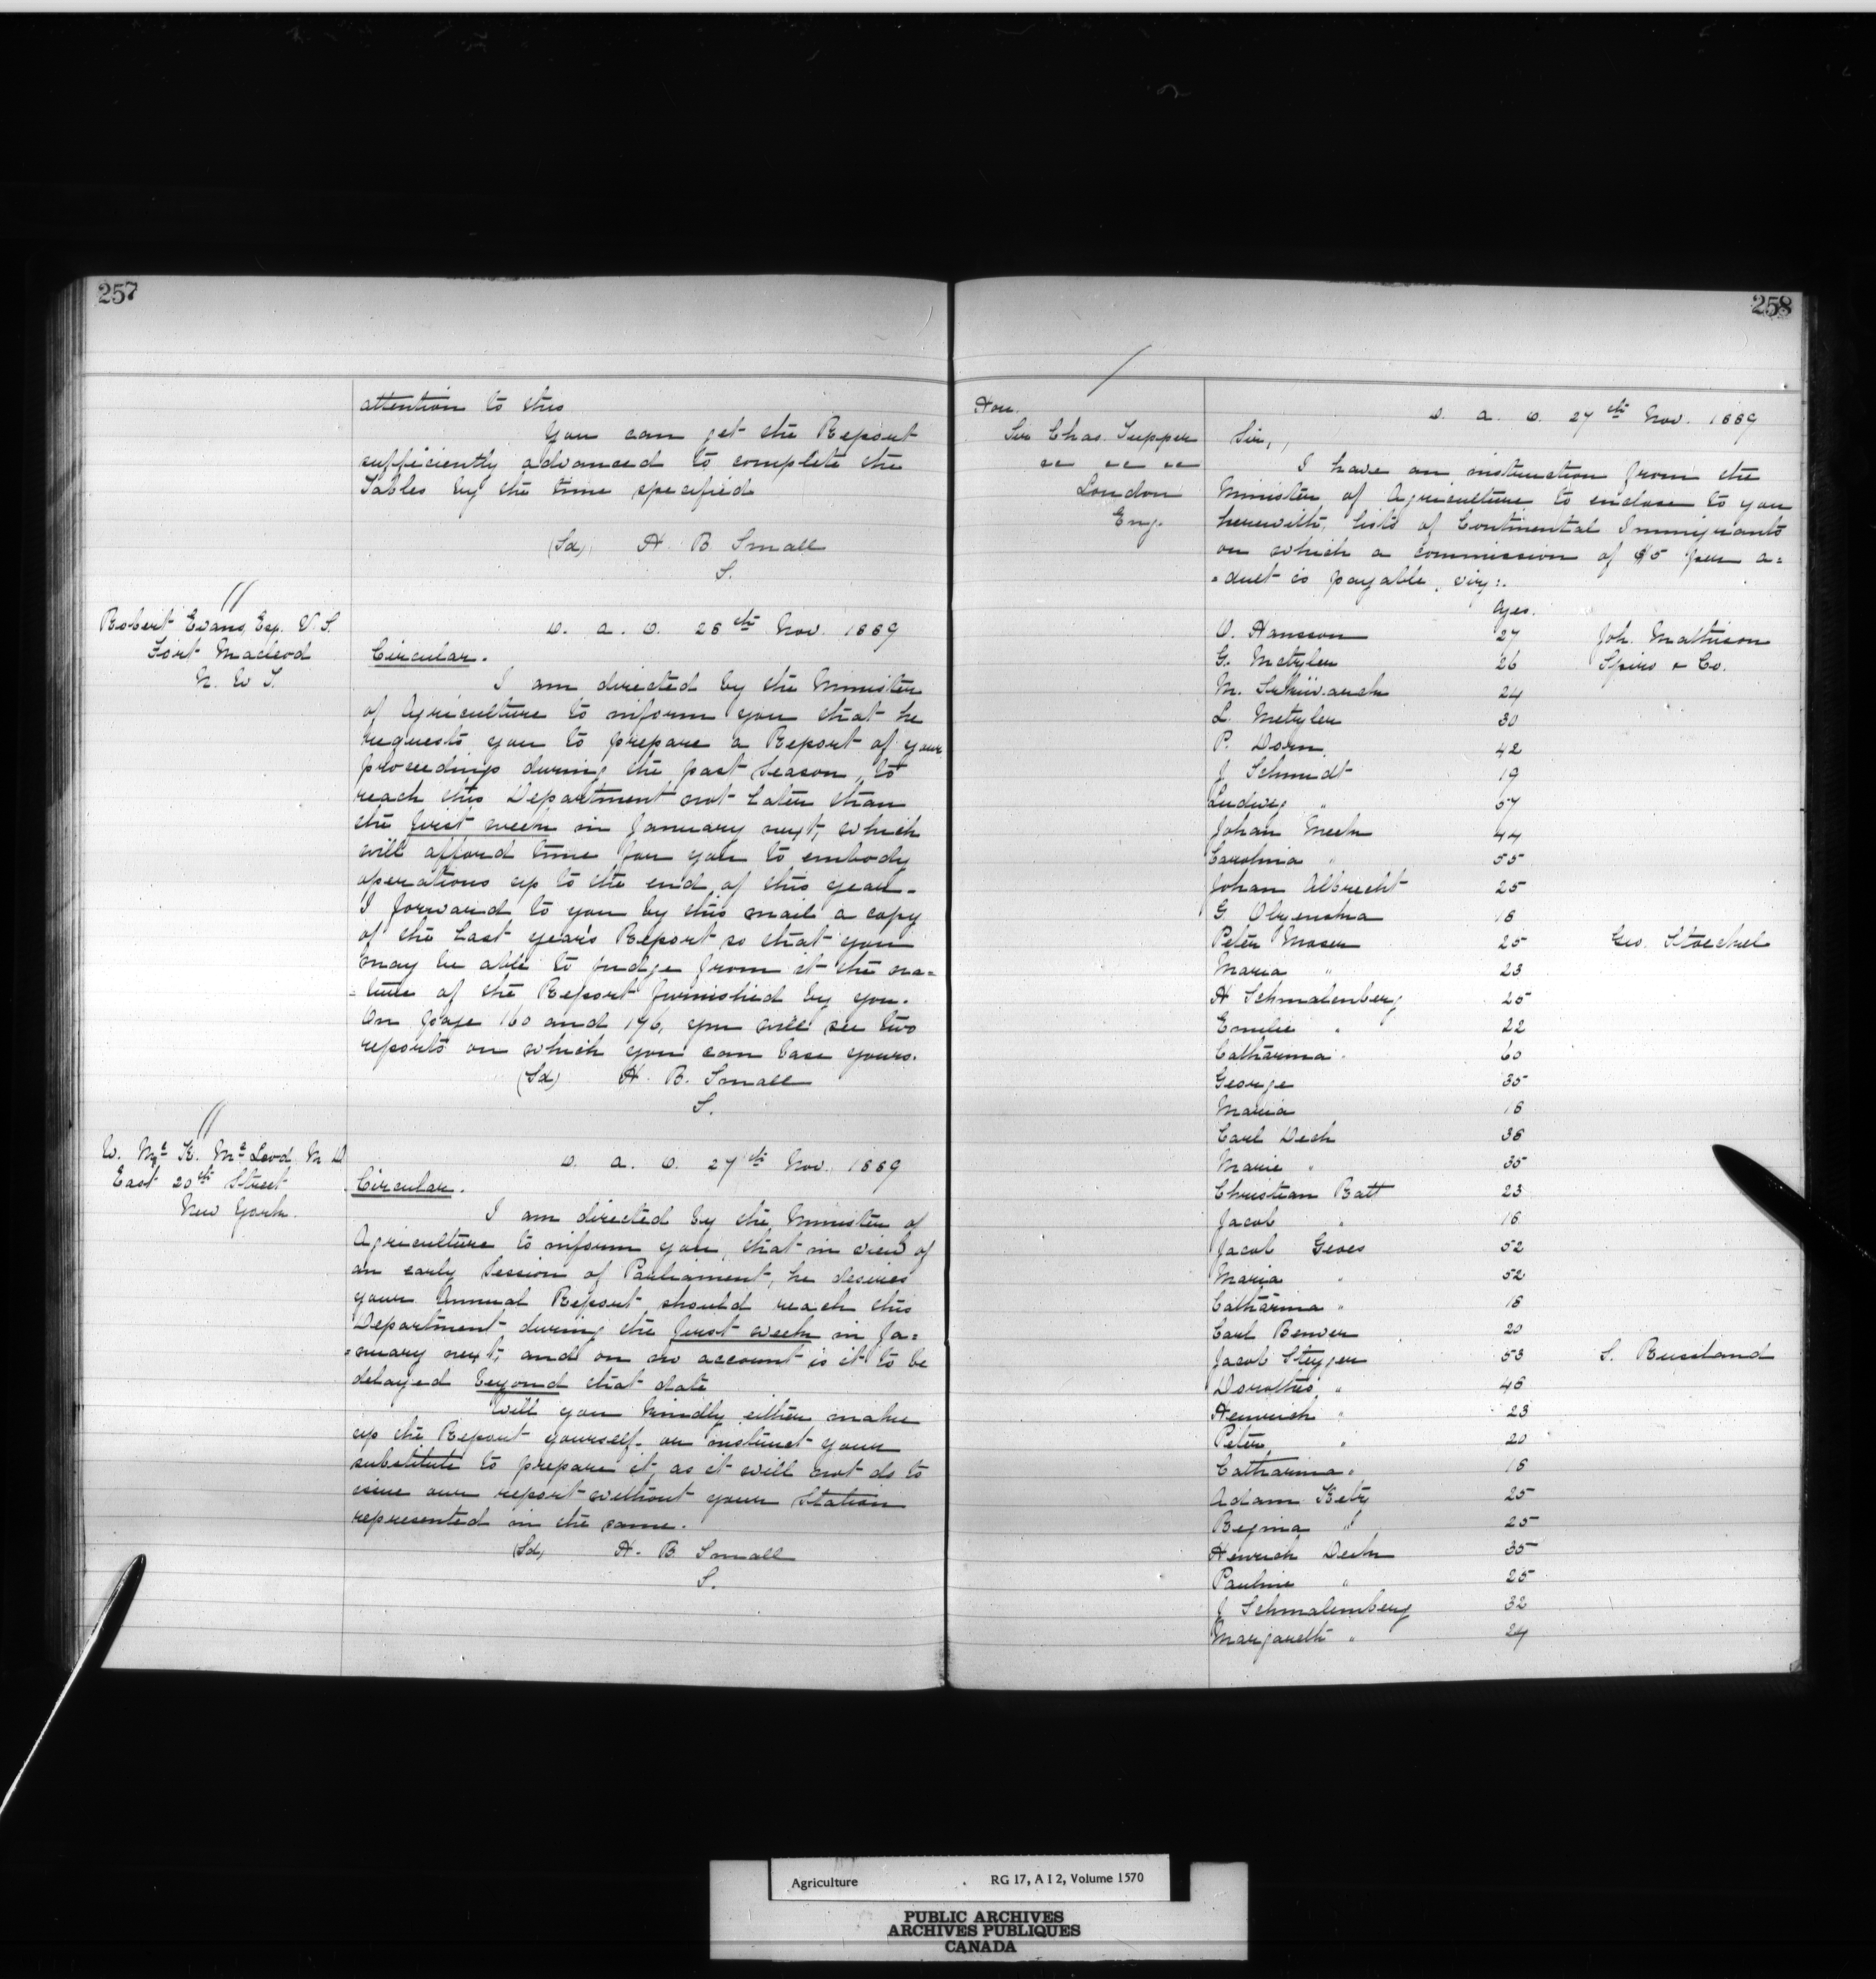 257
attention to this
You can get the Report
sufficiently advanced to complete the
Tables by the time specified
(Sd) H. B. Small
S.
Robert Evans, Esq. V. S.
Fort Macleod
N. W. T.
D. a. O. 26th Nov. 1889
Circular.
I am directed by the Minister
of Agriculture to inform you that he
requests you to prepare a Report of your
proceedings during the past Season, to
reach this Department not later than
the first week in January next, which
will afford time for you to embody
operations up to the end of this year.
I forward to you by this mail a copy
of the last year's Report so that you
may be able to judge from it the na=
=ture of the Report furnished by you.
On page 160 and 176, you will see two
reports on which you can base yours.
(Sd) H. B. Small
S.
McLeod, M. D.
East 20th Street
New York.
D. a. O. 27th Nov. 1889
Circular.
I am directed by the Minister of
Agriculture to inform you, that in view of
an early Session of Parliament, he desires
your Annual Report should reach this
Department during the first week in Ja=
=nuary next, and on no account is it to be
delayed beyond that date
Will you kindly either make
up the Report yourself or instruct your
substitute to prepare it, as it will not do to
issue our report without your Station
represented in the same.
(Sd) H. B. Small
S.
258
Hon.
Sir Chas. Tupper
" " "
London
Eng.
D. a. O. 27th Nov. 1889
Sir,
I have an instruction from the
Minister of Agriculture to enclose to you
herewith, lists of Continental Immigrants
on which a commission of $5 per a=
=dult is payable, viz:.
Ages.
O. Hansson 27 Joh. Mathison
G. Metzler 26 Spiro & Co.
M. 24
L. Metzler 30
P. Dorn 42
J. Schmidt 19
Ludwig " 57
Johan 44
Carolina " 55
Johan Albrecht 25
G. 18
Peter Moser 25 Geo. Stoeckel
Maria " 23
H Schmalenberg 25
Emilie " 22
Catharina " 60
George 35
Maria 18
Carl Dech 36
Marie " 35
Christian Batt 23
Jacob " 16
Jacob 52
Maria " 52
Catharina " 18
Carl 20
Jacob 53 S.
" 46
Heinrich " 23
Peter " 20
Catharina " 18
Adam 25
Regina " 25
Heinrich 35
Pauline " 25
J Schmalemberg 32
Margareth " 24
Agriculture RG 17, A I 2, Volume 1570
PUBLIC ARCHIVES
ARCHIVES PUBLIQUES
CANADA